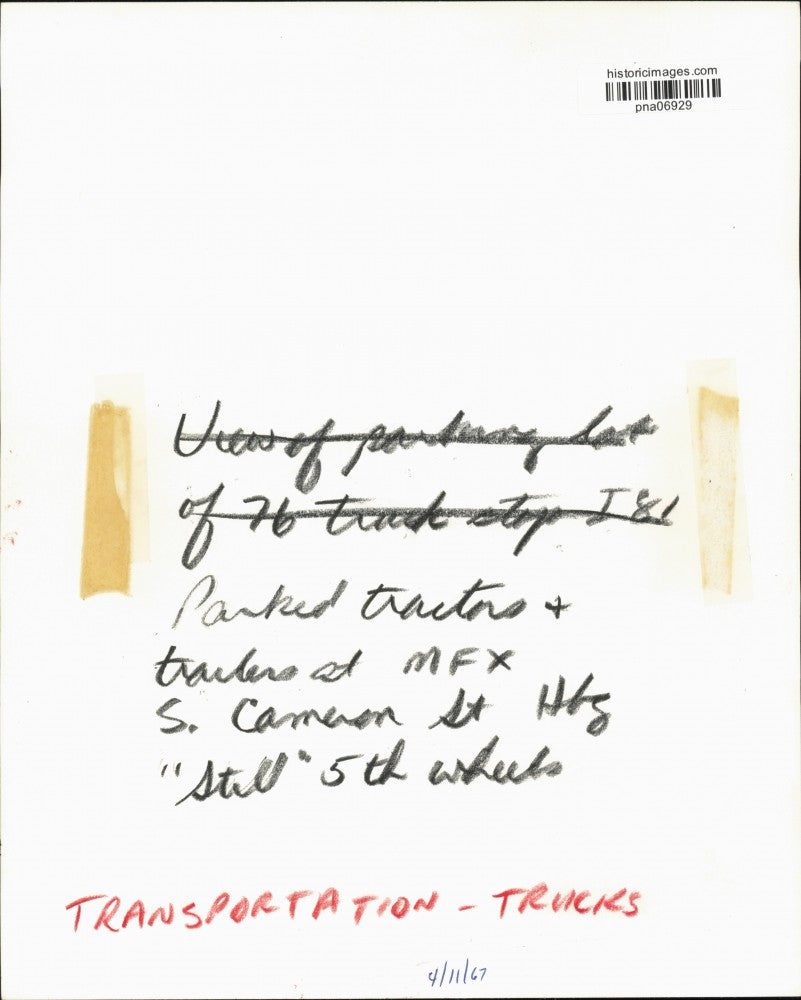 historicimages.com
pna06929
View of parking lot
of 76 truck stop I 81
Parked tractors +
trailers at MFX
S. Cameron St Hbg
"Still" 5th wheels
TRANSPORTATION - TRUCKS
4/11/67